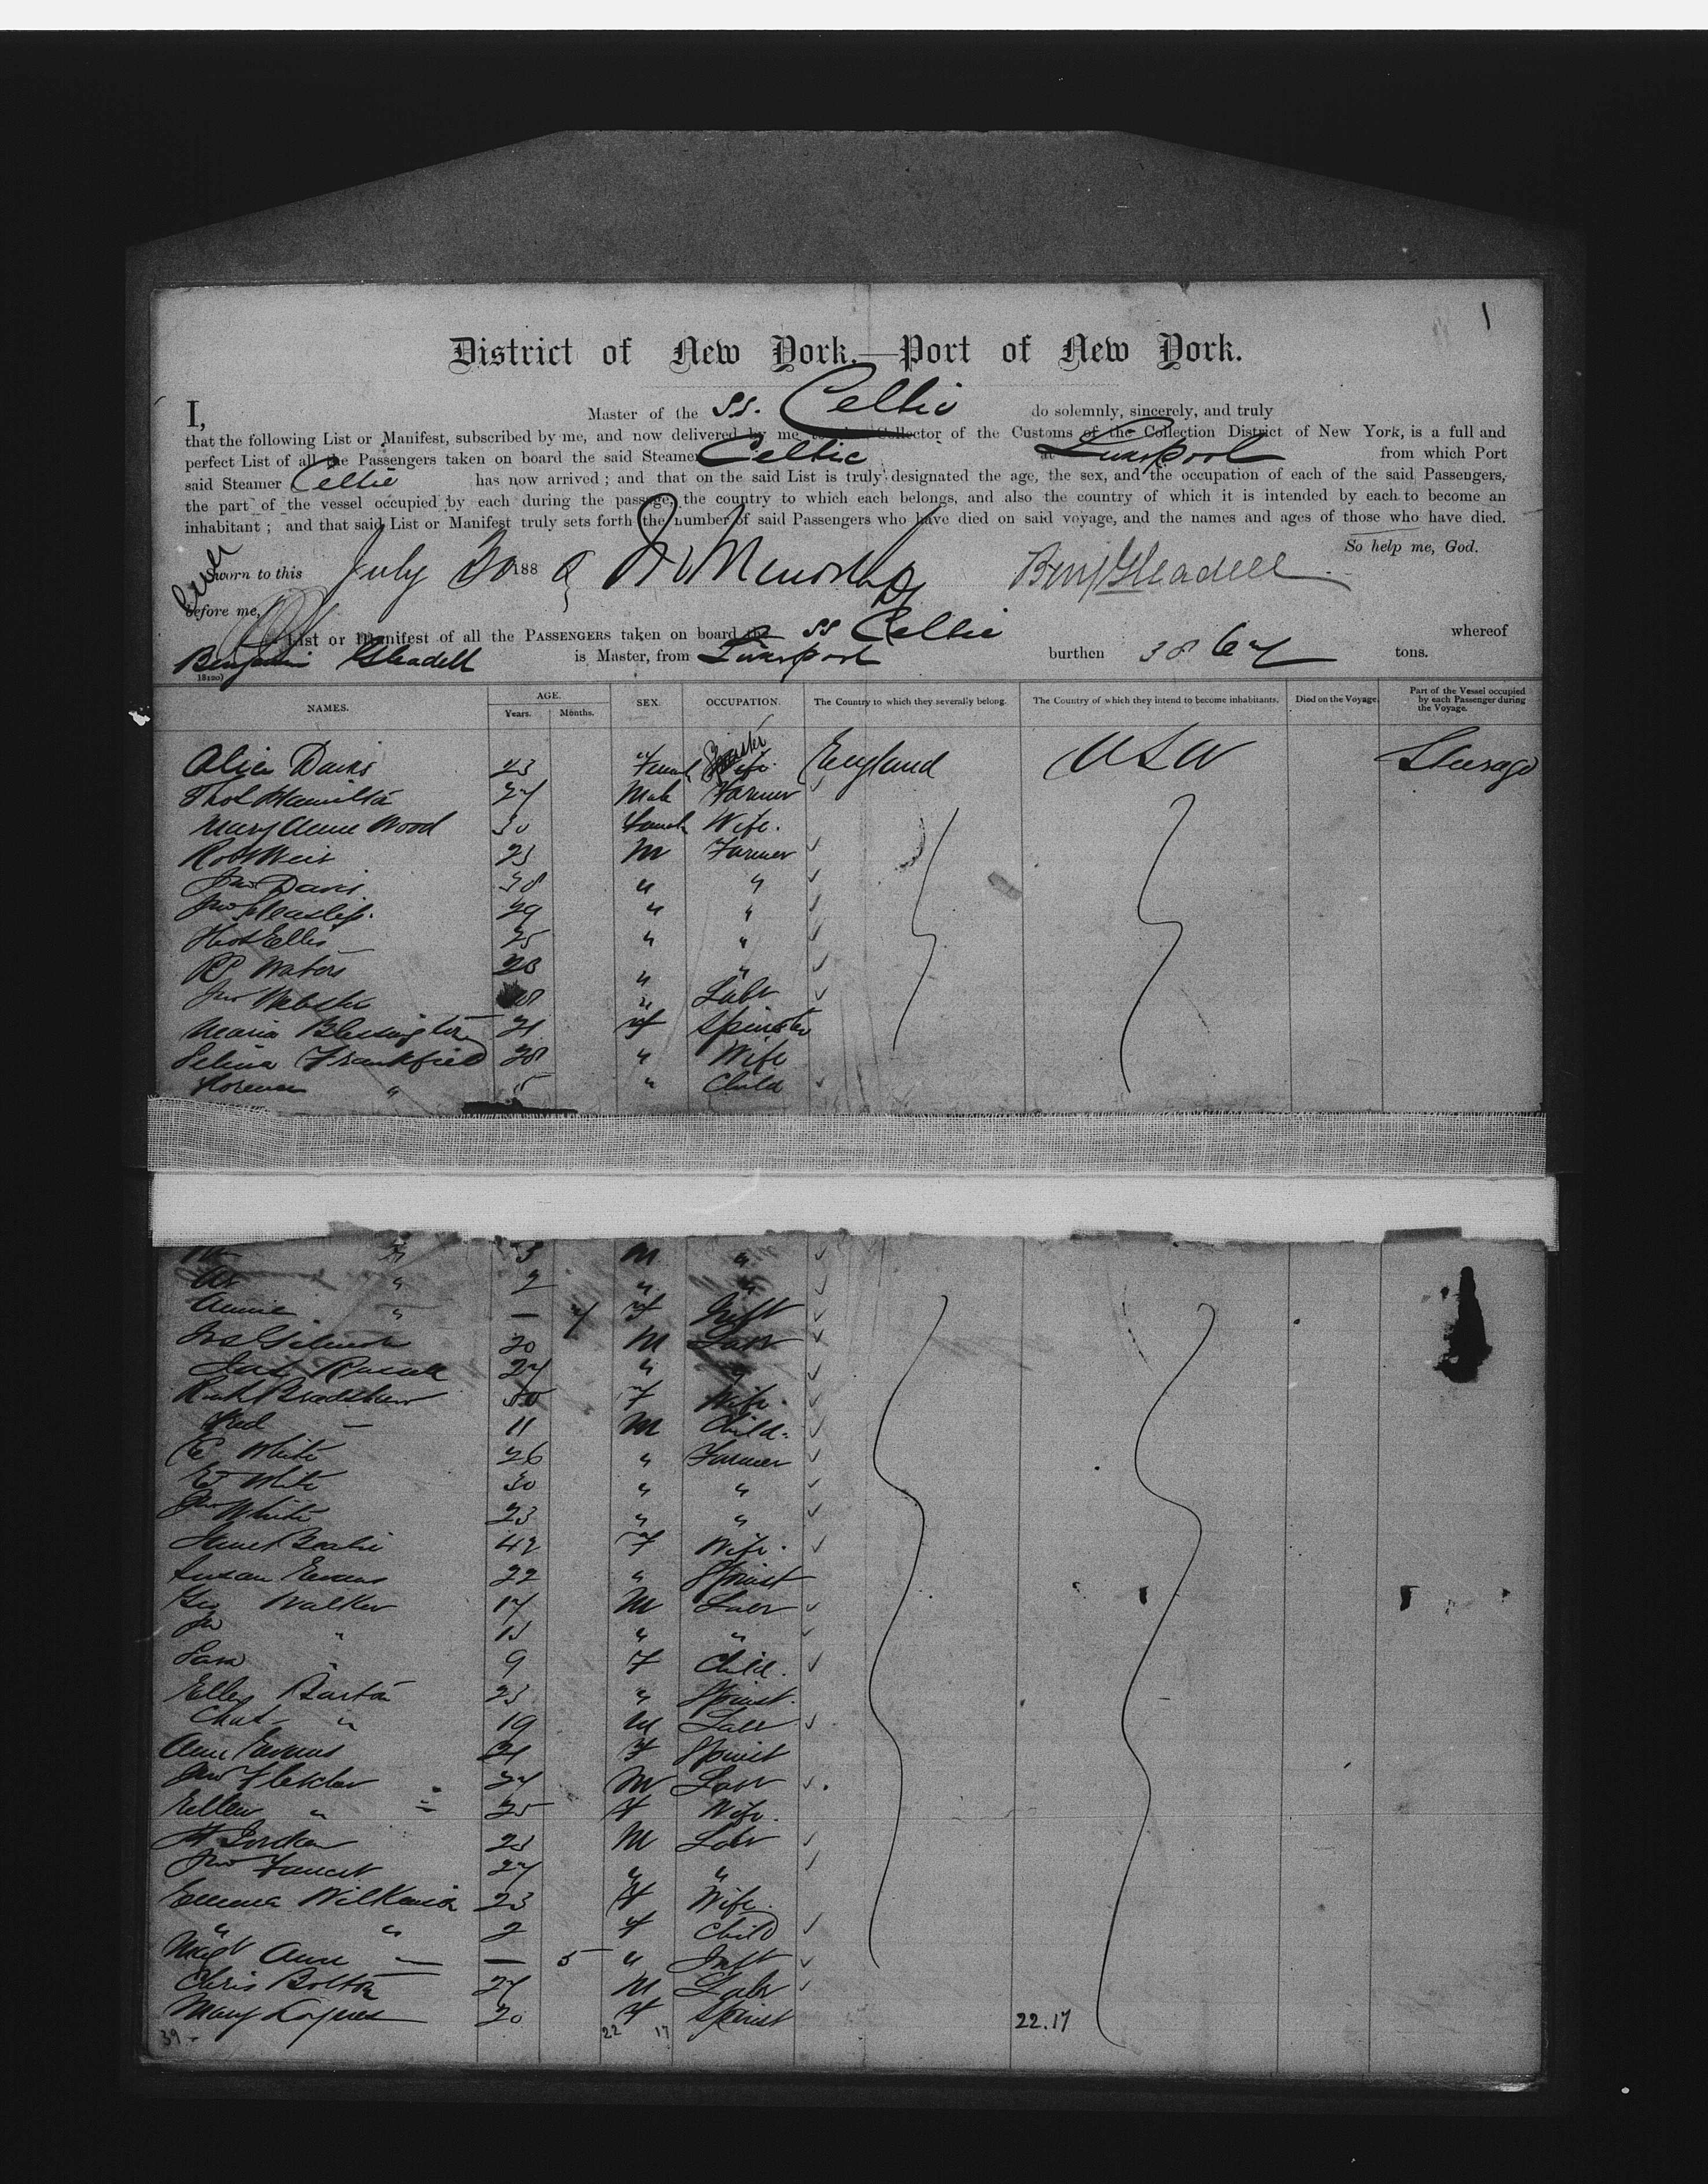 1
District of New York.—Port of New York.
I, Master of the SS. Celtic do solemnly, sincerely, and truly
that the following List or Manifest, subscribed by me, and now delivered by me to the Collector of the Customs of the Collection District of New York, is a full and
perfect List of all the Passengers taken on board the said Steamer Celtic at Liverpool from which Port
said Steamer Celtic has now arrived; and that on the said List is truly designated the age, the sex, and the occupation of each of the said Passengers,
the part of the vessel occupied by each during the passage, the country to which each belongs, and also the country of which it is intended by each to become an
inhabitant; and that said List or Manifest truly sets forth the number of said Passengers who have died on said voyage, and the names and ages of those who have died.
So help me, God.
Sworn to this July 30 188 Benj Gleadell
before me,
List or Manifest of all the PASSENGERS taken on board the SS Celtic whereof
Benjamin Gleadell is Master, from Liverpool burthen 3867 tons.
NAMES. AGE. Years. Months. SEX. OCCUPATION. The Country to which they severally belong. The Country of which they intend to become inhabitants. Died on the Voyage. Part of the Vessel occupied by each Passenger during the Voyage.
Alice Davis 23 Female Spinster Wife England USA Steerage
Thos Hamilton 27 Male Farmer
Mary Anne Wood 30 Female Wife.
Robt Weir 23 M Farmer
Jno Davis 38 " "
Jno 29 " "
Thos Ellis 25 " "
RP Waters 28 " "
Jno Webster " Labr
Maria Blessington 21 f Spinster
Selina Frankfield 28 " Wife
Florence " 5 " Child
3 M "
" 2 " "
Annie " — 7 F Inft
20 M Labr
27 " "
Bradshaw 30 F Wife.
Fred — 11 M Child.
C White 26 " Farmer
White 30 " "
Jno White 23 " "
42 F Wife.
Susan Evans 22 " Spinst
Geo Walker 17 M Labr
Jno " 15 " "
Sara " 9 F Child.
Ellen Barton 23 " Spinst.
Chas " 19 M Labr
Ann Evans 21 F Spinst
Jno Fletcher 27 M Labr
Ellen " 25 F Wife.
23 M Labr
Jno 27 " "
Emma Wilkinson 23 F Wife.
" " 2 F Child
Magt Anne — — 5 " Inft
Chris Bolton 27 M Labr
Mary 20 F Spinst
39 22 17 22.17